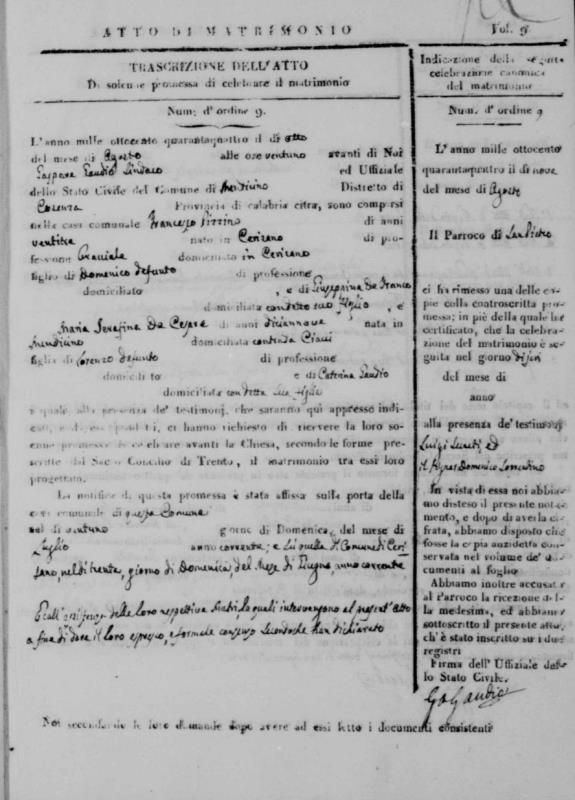 ATTO DI MATRIMONIO
Vol. 9
TRASCRIZIONE DELL'ATTO
Di solenne promessa di celebrare il matrimonio
Num: d'ordine 9.
L'anno mille ottocento quarantaquattro il di otto
del mese di Agosto alle ore ventuno avanti di Noi
Gaspare Gaudio Sindaco ed Uffiziale
dello Stato Civile del Comune di Mendicino Distretto di
Cosenza Provincia di calabria citra, sono comparsi
nella casa comunale Francesco di anni
ventitre nato in Cerisano di pro-
fessione domiciliato in Cerisano
figlio di Domenico defunto di professione
domiciliato , e di Giuseppina De Franco
domiciliata con detto suo figlio , e
Maria Serafina De Cesare di anni diciannove nata in
Mendicino domiciliata
figlia di Lorenzo defunto di professione
domiciliato e di Caterina Gaudio
domiciliata con detta sua figlia
i quali alla presenza de' testimonj, che saranno qui appresso indi-
cati, e da essi prodotti, ci hanno richiesto di ricevere la loro so-
lenne promessa di celebrare avanti la Chiesa, secondo le forme pre-
scritte dal Sacro Concilio di Trento, il matrimonio tra essi loro
progettato.
La notifica di questa promessa è stata affissa sulla porta della
casa comunale di questo Comune
nel dì ventuno giorno di Domenica, del mese di
Luglio anno corrente; e in quella del Comune di Ceri
sano, nel dì trenta, giorno di Domenica, del Mese di Giugno, anno corrente
delle loro rispettive Madri, le quali intervengono al presente atto
a fine di dare il loro espresso, e formale consenso secondoche han dichiarato
Noi secondando le loro domande dopo avere ad essi letto i documenti consistenti
Indicazione della seguita
celebrazione canonica
del matrimonio
Num. d'ordine 9
L'anno mille ottocento
quarantaquattro il dì nove
del mese di Agosto
Il Parroco di San Pietro
ci ha rimesso una delle co-
pie colla controscritta pro-
messa; in piè della quale ha
certificato, che la celebra-
zione del matrimonio è se-
guita nel giorno di jeri
del mese di
anno
alla presenza de' testimonj
Luigi ed
il Domenico
In vista di essa noi abbia-
mo disteso il presente noti-
mento, e dopo di averla ci-
frata, abbiamo disposto che
fosse la copia anzidetta con-
servata nel volume de' do-
cumenti al foglio
Abbiamo inoltre accusato
al Parroco la ricezione del-
la medesima, ed abbiamo
sottoscritto il presente atto,
ch'è stato inscritto su i due
registri
Firma dell'Uffiziale del-
lo Stato Civile.
G. Gaudio